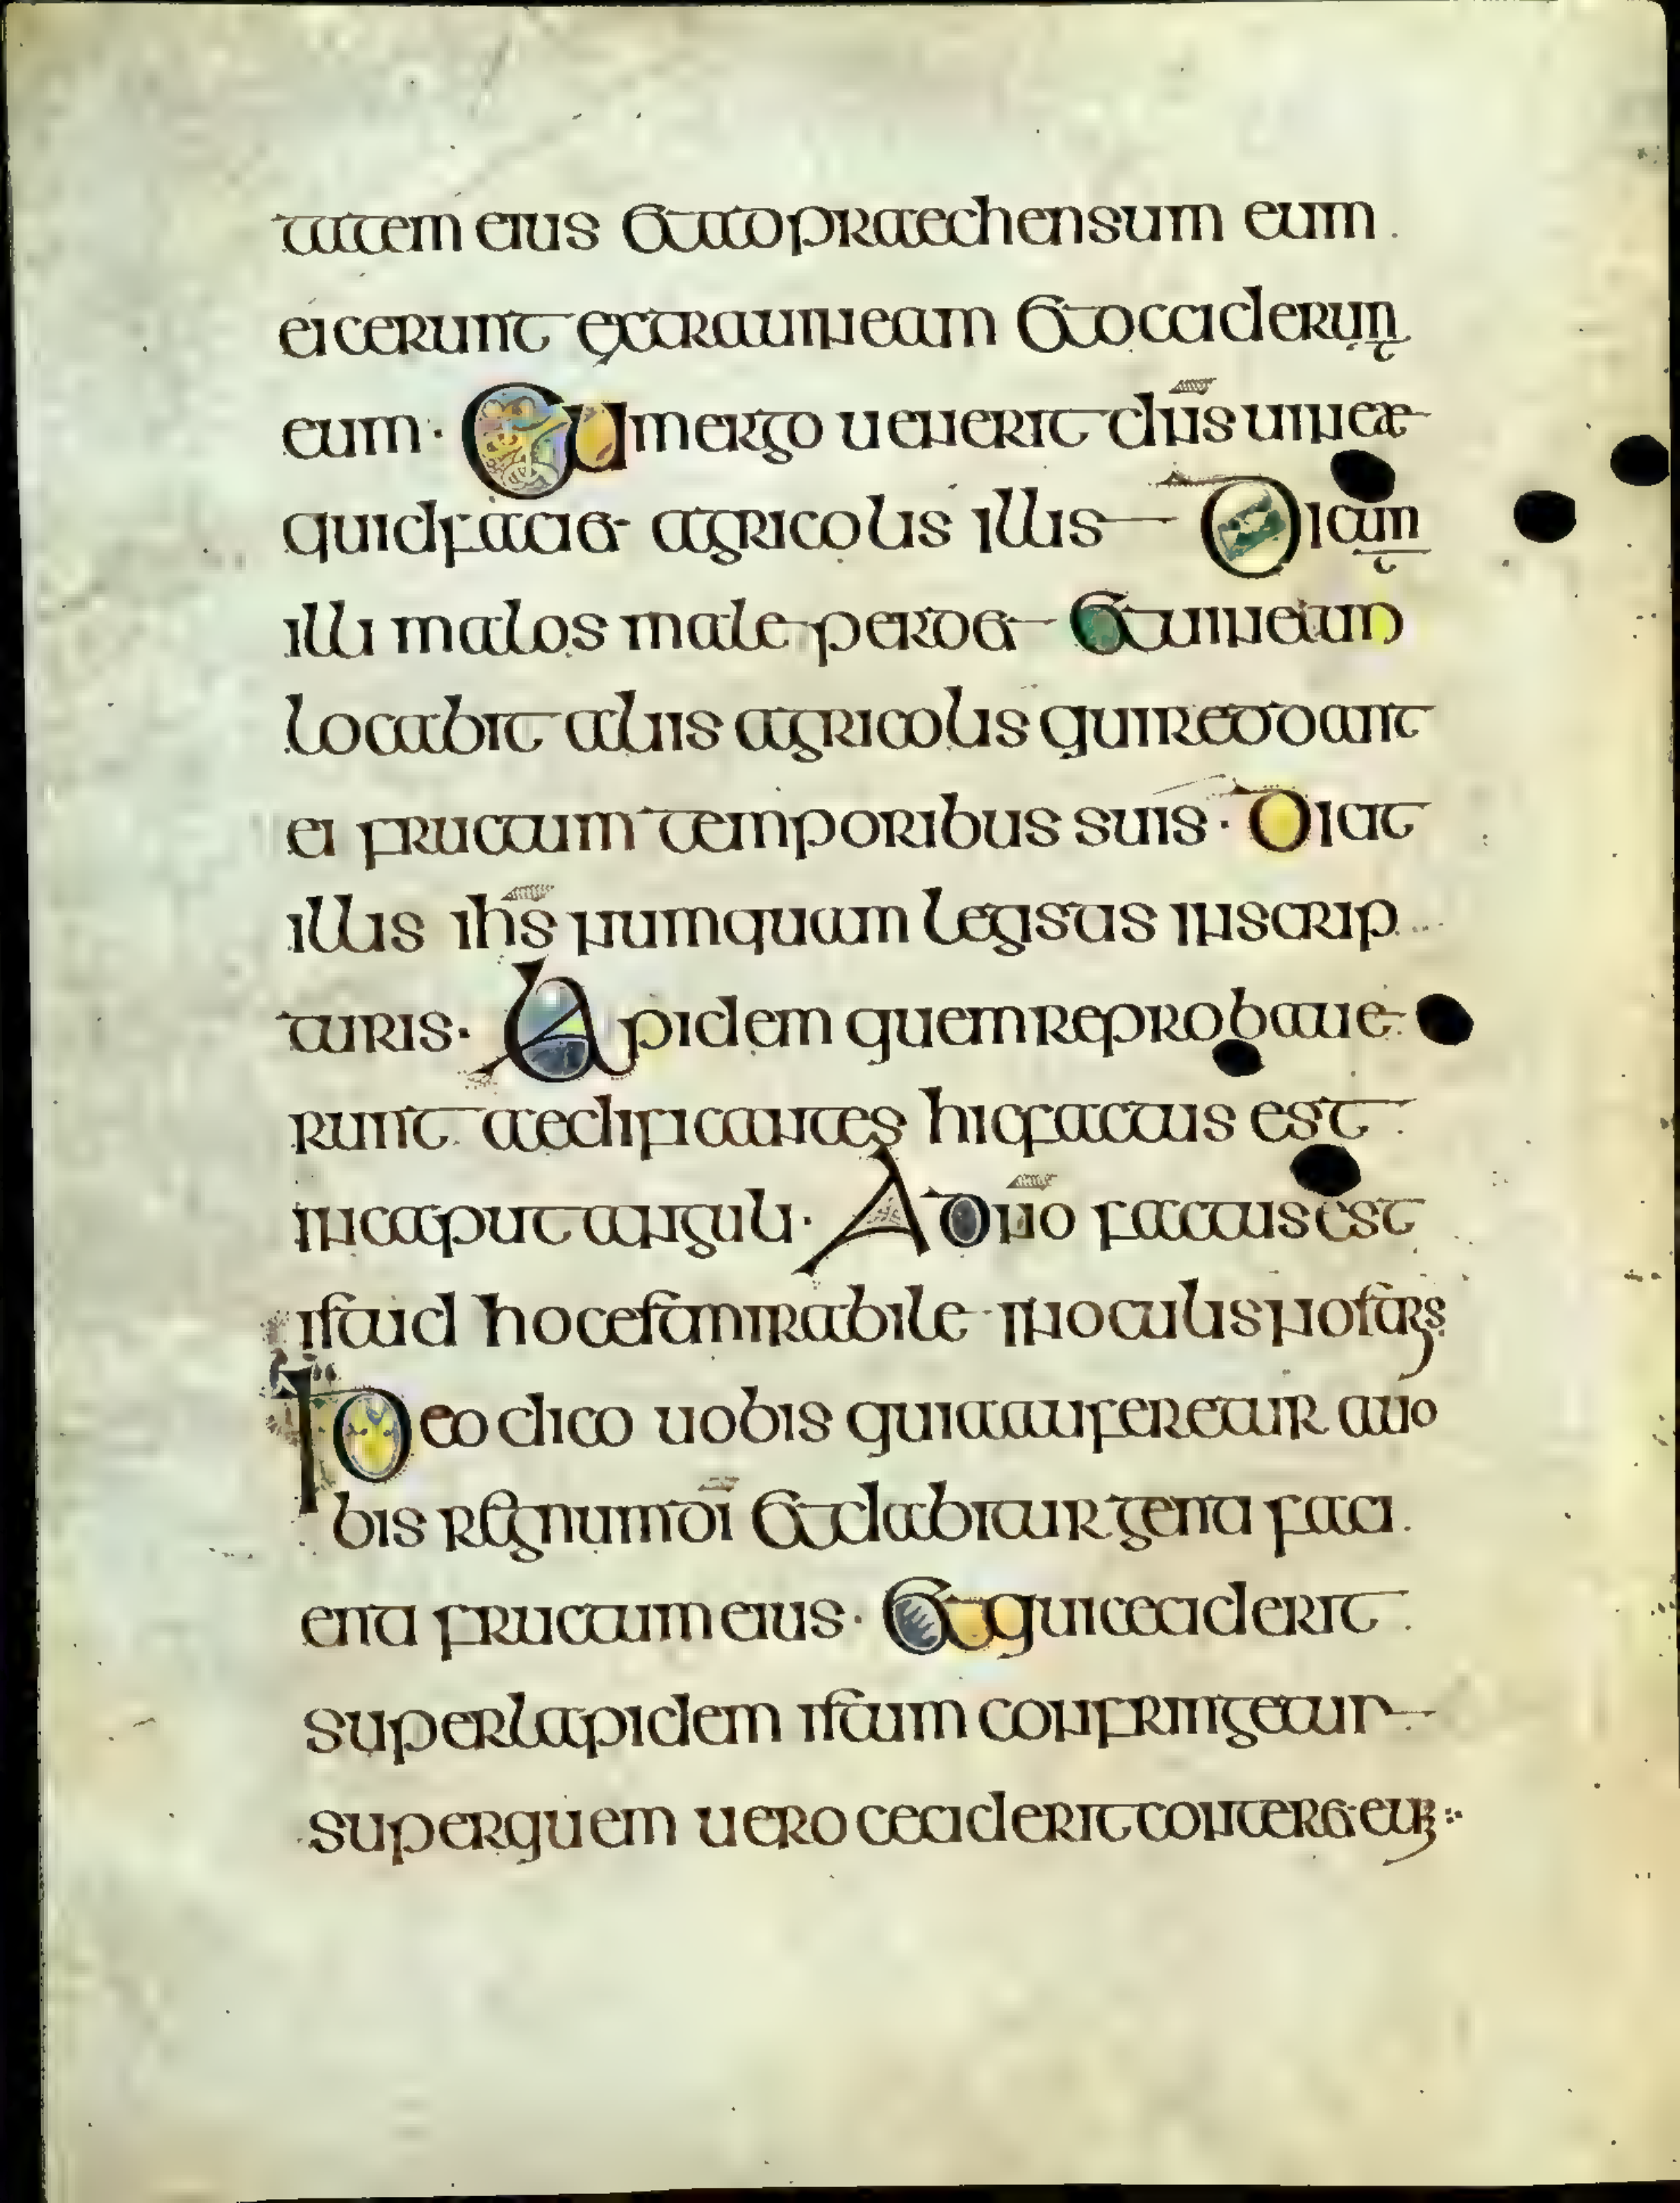 tatem eius et adpraechensum eum
eicerunt extra uineam et occiderunt
eum · Cum ergo uenerit dn̄s uineae
quid faciet agricolis illis Dicunt
illi malos male perdet et uineam
locabit aliis agricolis qui reddant
ei fructum temporibus suis · Dicit
illis ih̄s numquam legistis inscrip
turis · Lapidem quem reprobaue
runt aedificantes hic factus est
in caput anguli · A dn̄o factus est
istud hoc est mirabile in oculis nostris
Ideo dico uobis quia auferetur a uo
bis regnum dī et dabitur genti faci
enti fructum eius · Et qui ceciderit
super lapidem istum confringetur
super quem uero ceciderit conteret eum